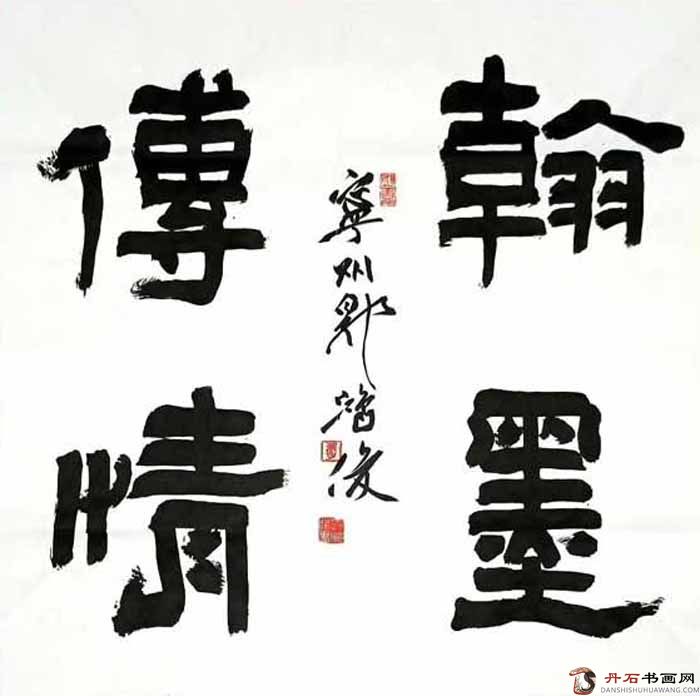 翰墨
傳情
寧州
俊
丹石书画网
DANSHISHUHUAWANG.COM